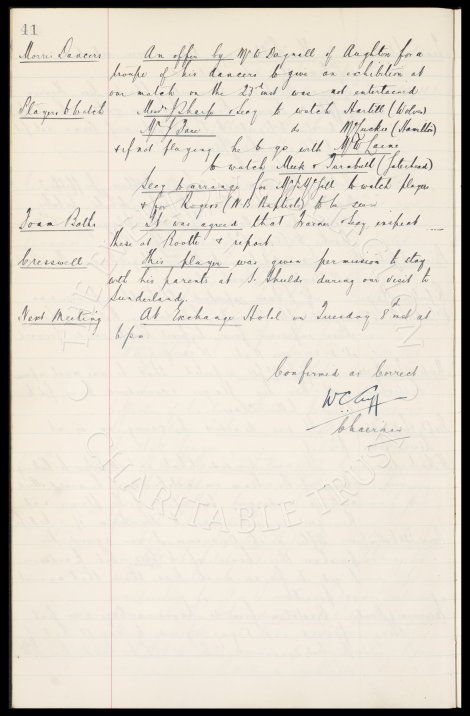 41
Morris Dancers An offer by Mr W Bagnall of Aughton for a
troupe of his dancers to give an exhibition at
our match on the 23rd inst was not entertained
Players to Watch Messrs J Sharp & Secy to watch Hartill (Wolves)
do McLuckie (Hamilton)
& if not playing he to go with Mr
to watch Meek & Turnbull (Gateshead)
Secy to arrange for to watch players
& for Rogers (N.B. Baptists) to be seen
Foam Baths It was agreed that Trainer & Secy inspect
these at Bootle & report.
Cresswell This player was given permission to stay
with his parents at S. Shields during our visit to
Sunderland.
Next Meeting At Exchange Hotel on Tuesday 8th inst at
6 p.m.
Confirmed as Correct
W C Cuff
Chairman
CHARITABLE TRUST